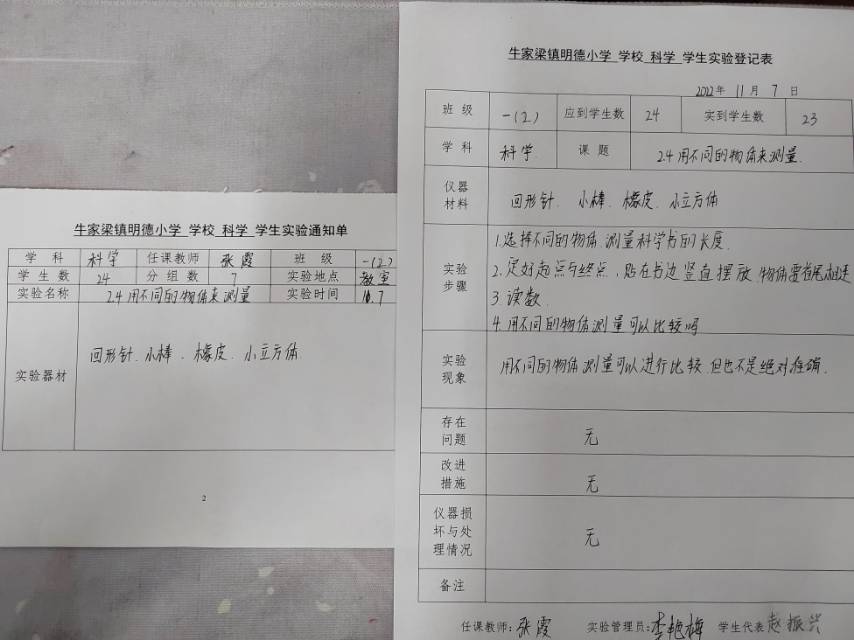 牛家梁镇明德小学 学校 科学 学生实验通知单
学 科 科学 任课教师 张霞 班 级 一(2)
学 生 数 24 分 组 数 7 实验地点 教室
实验名称 2.4用不同的物体来测量 实验时间 11.7
实验器材 回形针、小棒、橡皮、小立方体
2
牛家梁镇明德小学 学校 科学 学生实验登记表
2022年 11月 7日
班 级 一(2) 应到学生数 24 实到学生数 23
学 科 科学 课 题 2.4用不同的物体来测量
仪器材料 回形针、小棒、橡皮、小立方体
实验步骤 1.选择不同的物体测量科学书的长度.
2.定好起点与终点,贴在书边竖直摆放,物体要首尾相连
3.读数.
4.用不同的物体测量可以比较吗
实验现象 用不同的物体测量可以进行比较.但也不是绝对准确.
存在问题 无
改进措施 无
仪器损坏与处理情况 无
备注
任课教师:张霞 实验管理员:李艳梅 学生代表 赵振兴